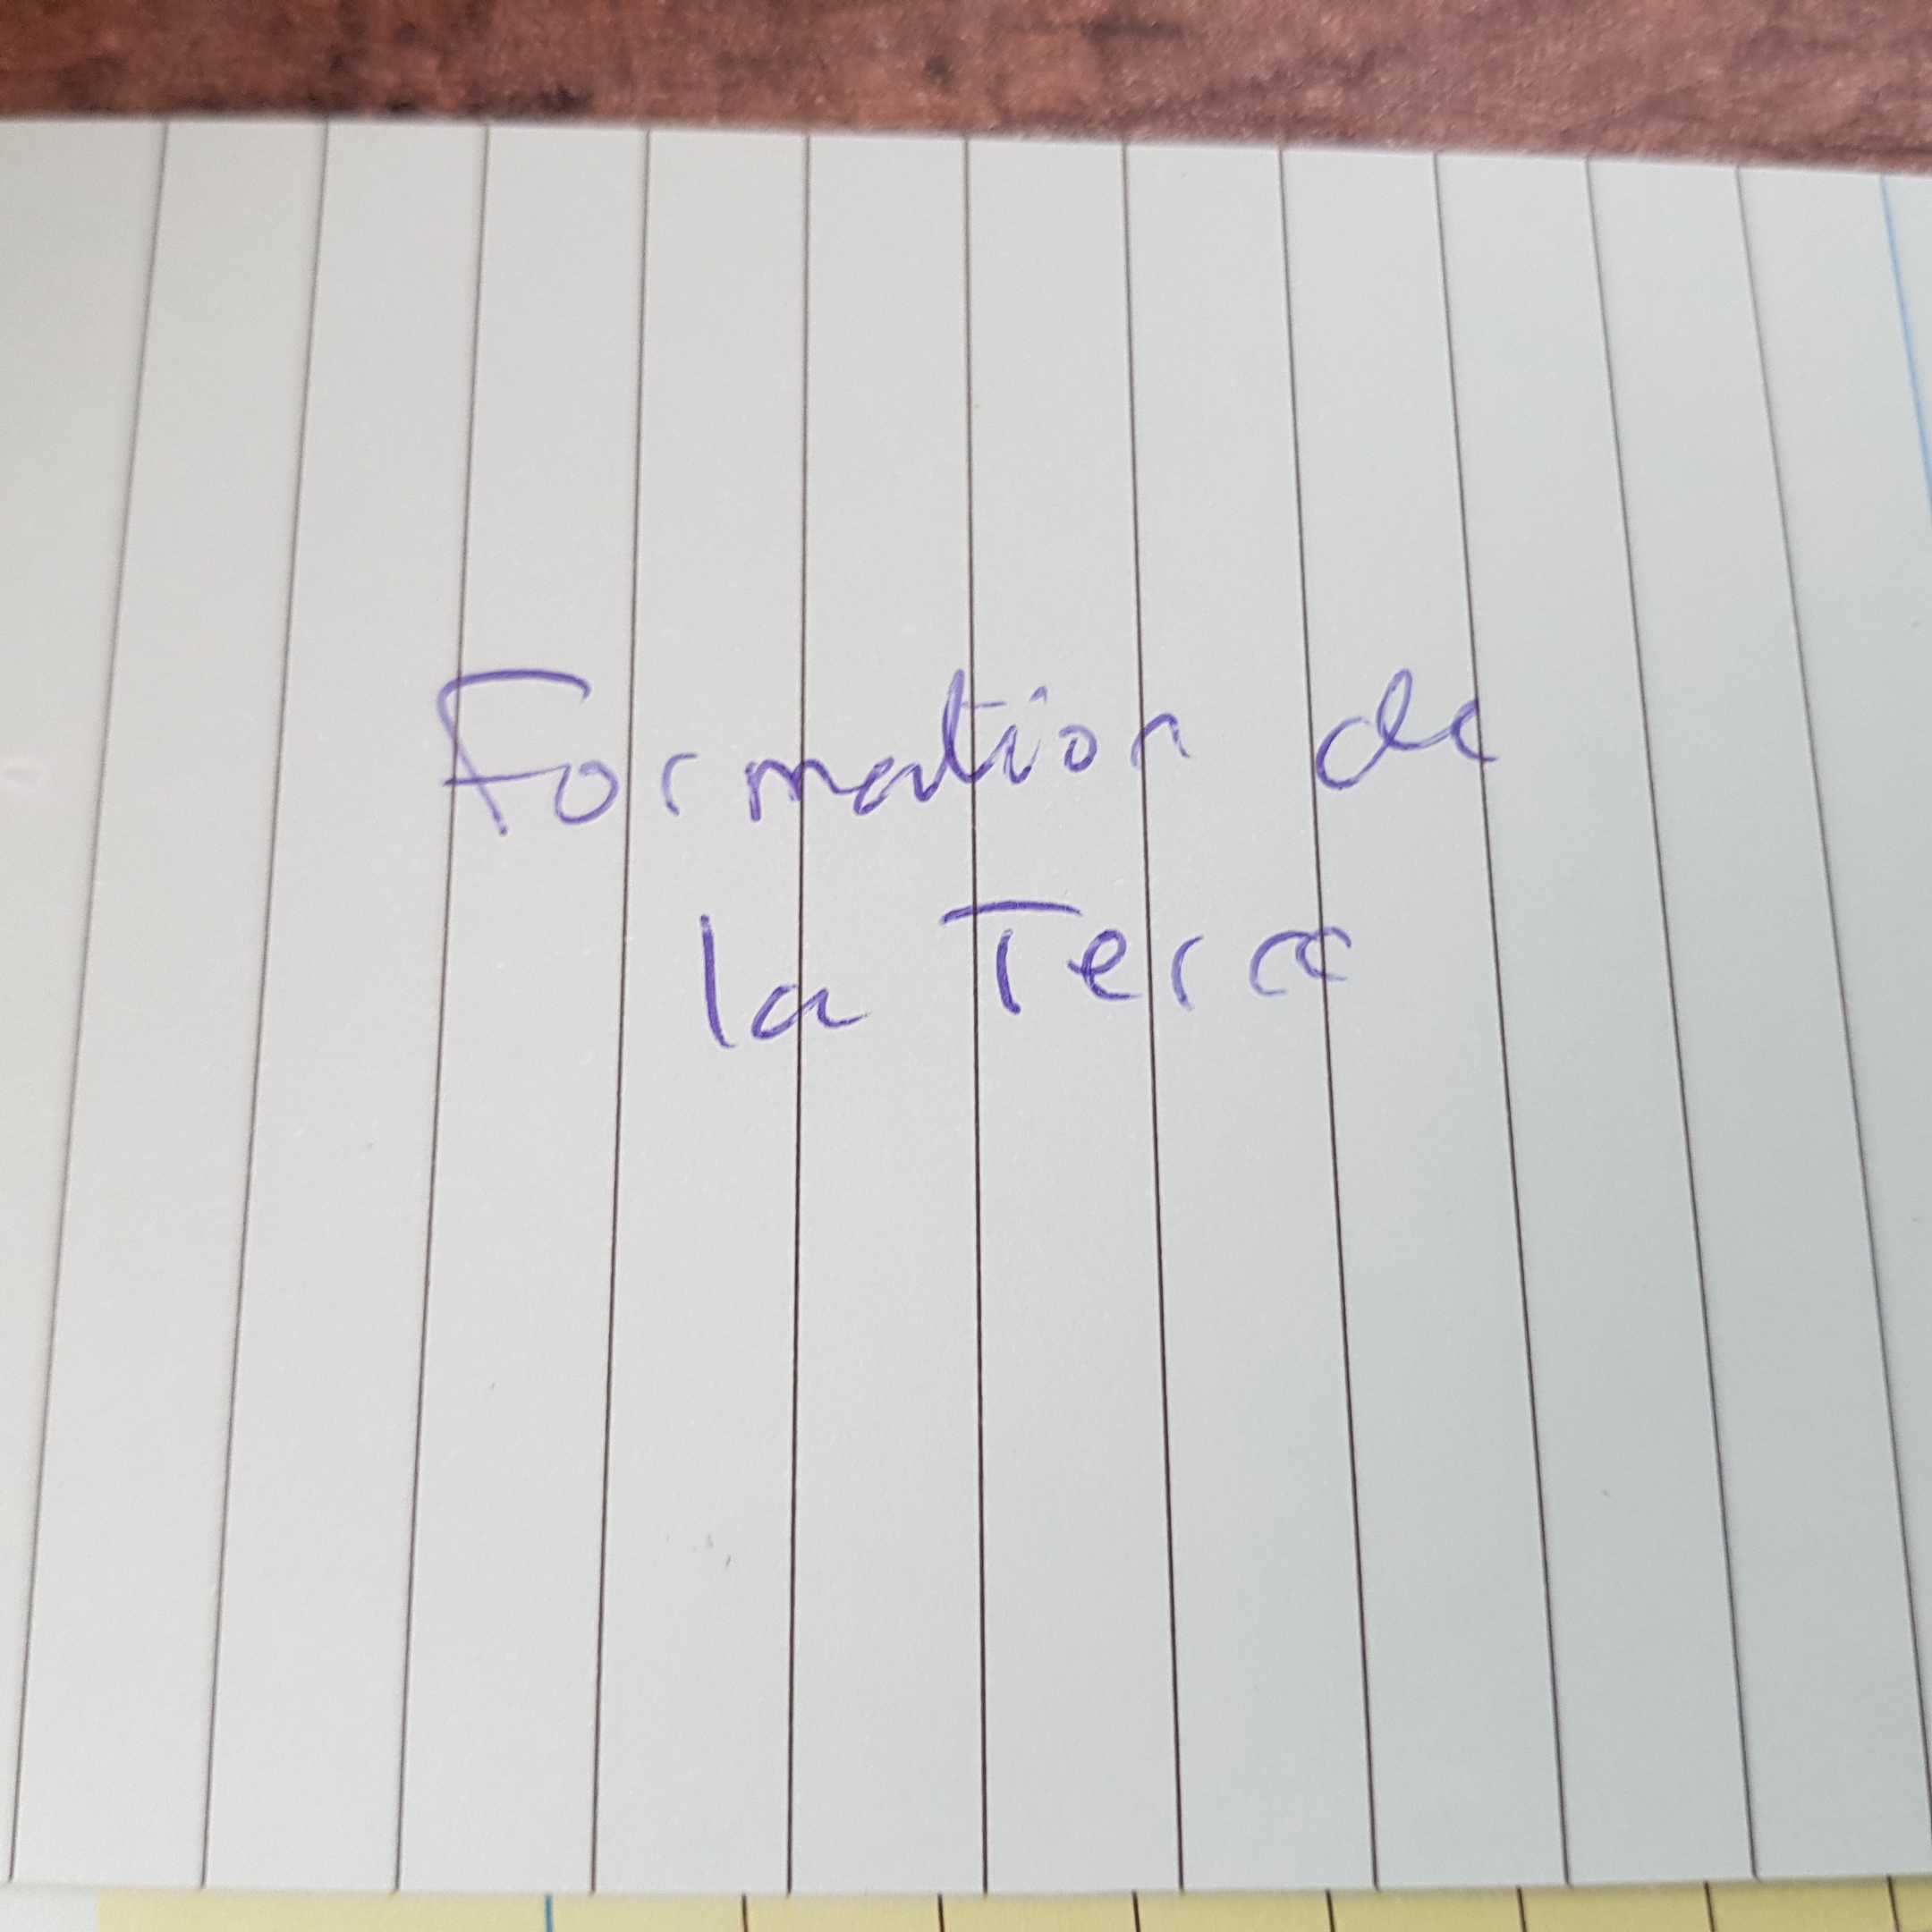 Formation de
la Terre